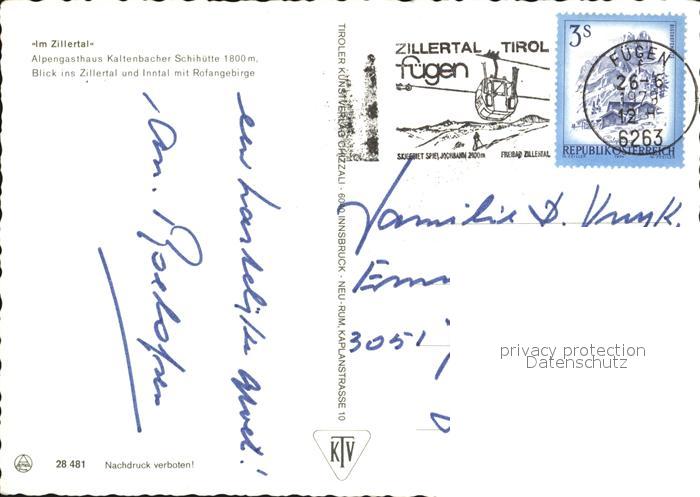 »Im Zillertal«
Alpengasthaus Kaltenbacher Schihütte 1800 m,
Blick ins Zillertal und Inntal mit Rofangebirge
een hartelijke groet!
TIROLER KUNSTVERLAG CHIZZALI - 6020 INNSBRUCK - NEU-RUM, KAPLANSTRASSE 10
ZILLERTAL TIROL
fügen
SKIGEBIET SPIELJOCHBAHN 2100m FREIBAD ZILLERTAL
3 S
REPUBLIK ÖSTERREICH
FÜGEN
6263
Familie D.
3051
privacy protection
Datenschutz
KTV
28 481 Nachdruck verboten!